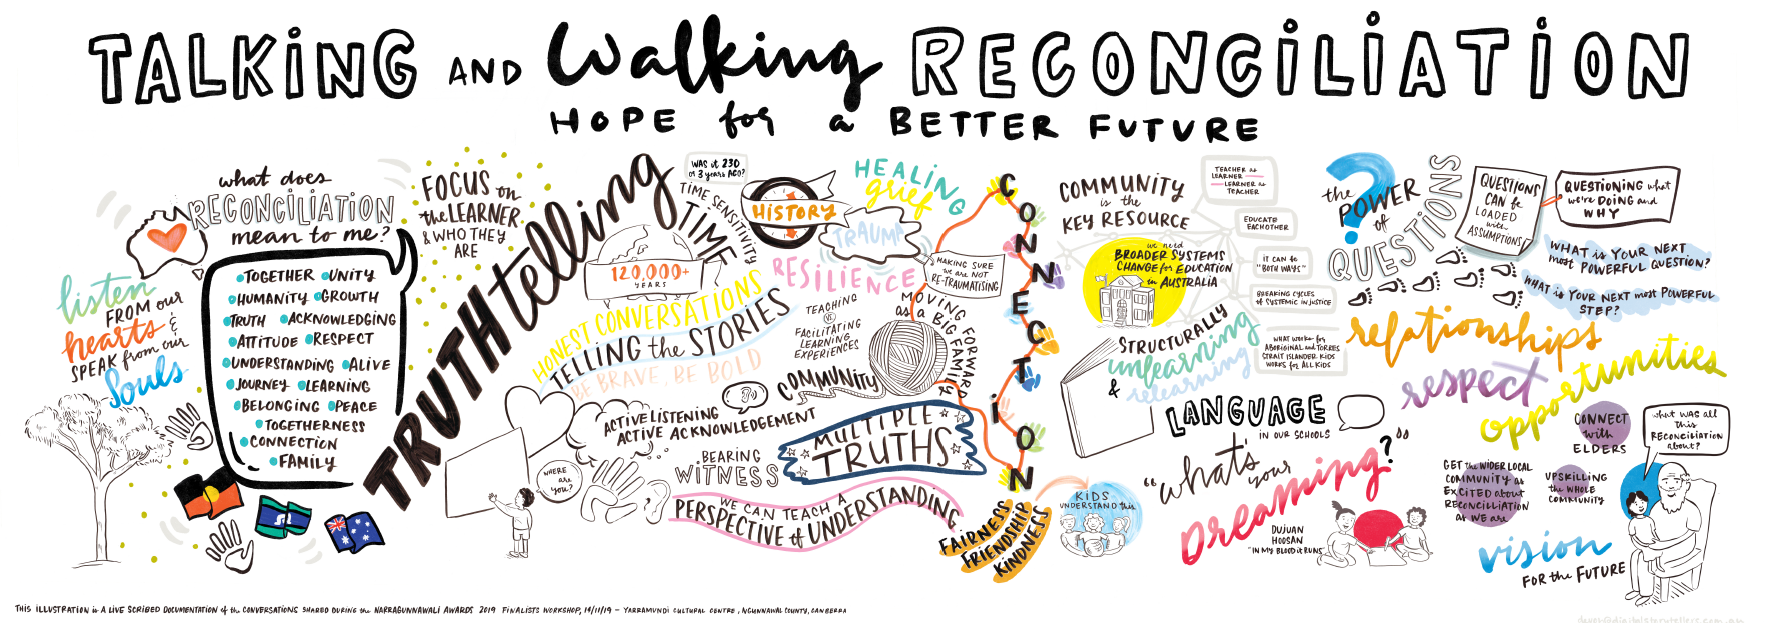 TALKING AND Walking RECONCILIATION
HOPE for a BETTER FUTURE
what does
RECONCILIATION
mean to me?
listen
FROM our
hearts &
SPEAK from our
Souls
TOGETHER UNITY
HUMANITY GROWTH
TRUTH ACKNOWLEDGING
ATTITUDE RESPECT
UNDERSTANDING ALIVE
JOURNEY LEARNING
BELONGING PEACE
TOGETHERNESS
CONNECTION
FAMILY
FOCUS on
the LEARNER
& WHO THEY
ARE
TRUTH telling
WAS it 230
or 3 years AGO?
TIME SENSITIVITY
TIME
HISTORY
120,000+
YEARS
HONEST CONVERSATIONS
TELLING the STORIES
BE BRAVE, BE BOLD
HEALING
grief
TRAUMA
RESILIENCE
MAKING SURE
we are NOT
RE-TRAUMATISING
TEACHING
VS
FACILITATING
LEARNING
EXPERIENCES
MOVING FORWARD
as a BIG FAMILY
COMMUNITY
ACTIVE LISTENING
ACTIVE ACKNOWLEDGEMENT
WHERE
are
you?
BEARING
WITNESS
MULTIPLE
TRUTHS
WE CAN TEACH A
PERSPECTIVE of UNDERSTANDING
CONNECTION
FAIRNESS
FRIENDSHIP
KINDNESS
KIDS
UNDERSTAND this
COMMUNITY
is the
KEY RESOURCE
TEACHER as
LEARNER
LEARNER as
TEACHER
EDUCATE
EACHOTHER
IT CAN be
"BOTH WAYS"
BREAKING CYCLES
of SYSTEMIC INJUSTICE
WHAT works for
ABORIGINAL and TORRES
STRAIT ISLANDER KIDS
WORKS for ALL KIDS
we need
BROADER SYSTEMS
CHANGE for EDUCATION
in AUSTRALIA
STRUCTURALLY
unlearning
& relearning
LANGUAGE
IN OUR SCHOOLS
"whats your
DREAMING?"
DUJUAN
HOOSAN
"IN MY BLOOD it RUNS"
the
POWER
of
QUESTIONS
?
QUESTIONS
CAN be
LOADED
with
ASSUMPTIONS
QUESTIONING what
we're DOING and
WHY
WHAT is YOUR NEXT
most POWERFUL QUESTION?
WHAT is YOUR NEXT most POWERFUL
STEP?
relationships
respect
opportunities
CONNECT
with
ELDERS
GET the WIDER LOCAL
COMMUNITY as
EXCITED about
RECONCILIATION
as WE are
UPSKILLING
the WHOLE
COMMUNITY
what WAS all
this
RECONCILIATION
about?
vision
FOR the FUTURE
THIS ILLUSTRATION is A LIVE SCRIBED DOCUMENTATION of the CONVERSATIONS SHARED DURING the NARRAGUNNAWALI AWARDS 2019 FINALISTS WORKSHOP, 14/11/19 – YARRAMUNDI CULTURAL CENTRE, NGUNNAWAL COUNTY, CANBERRA